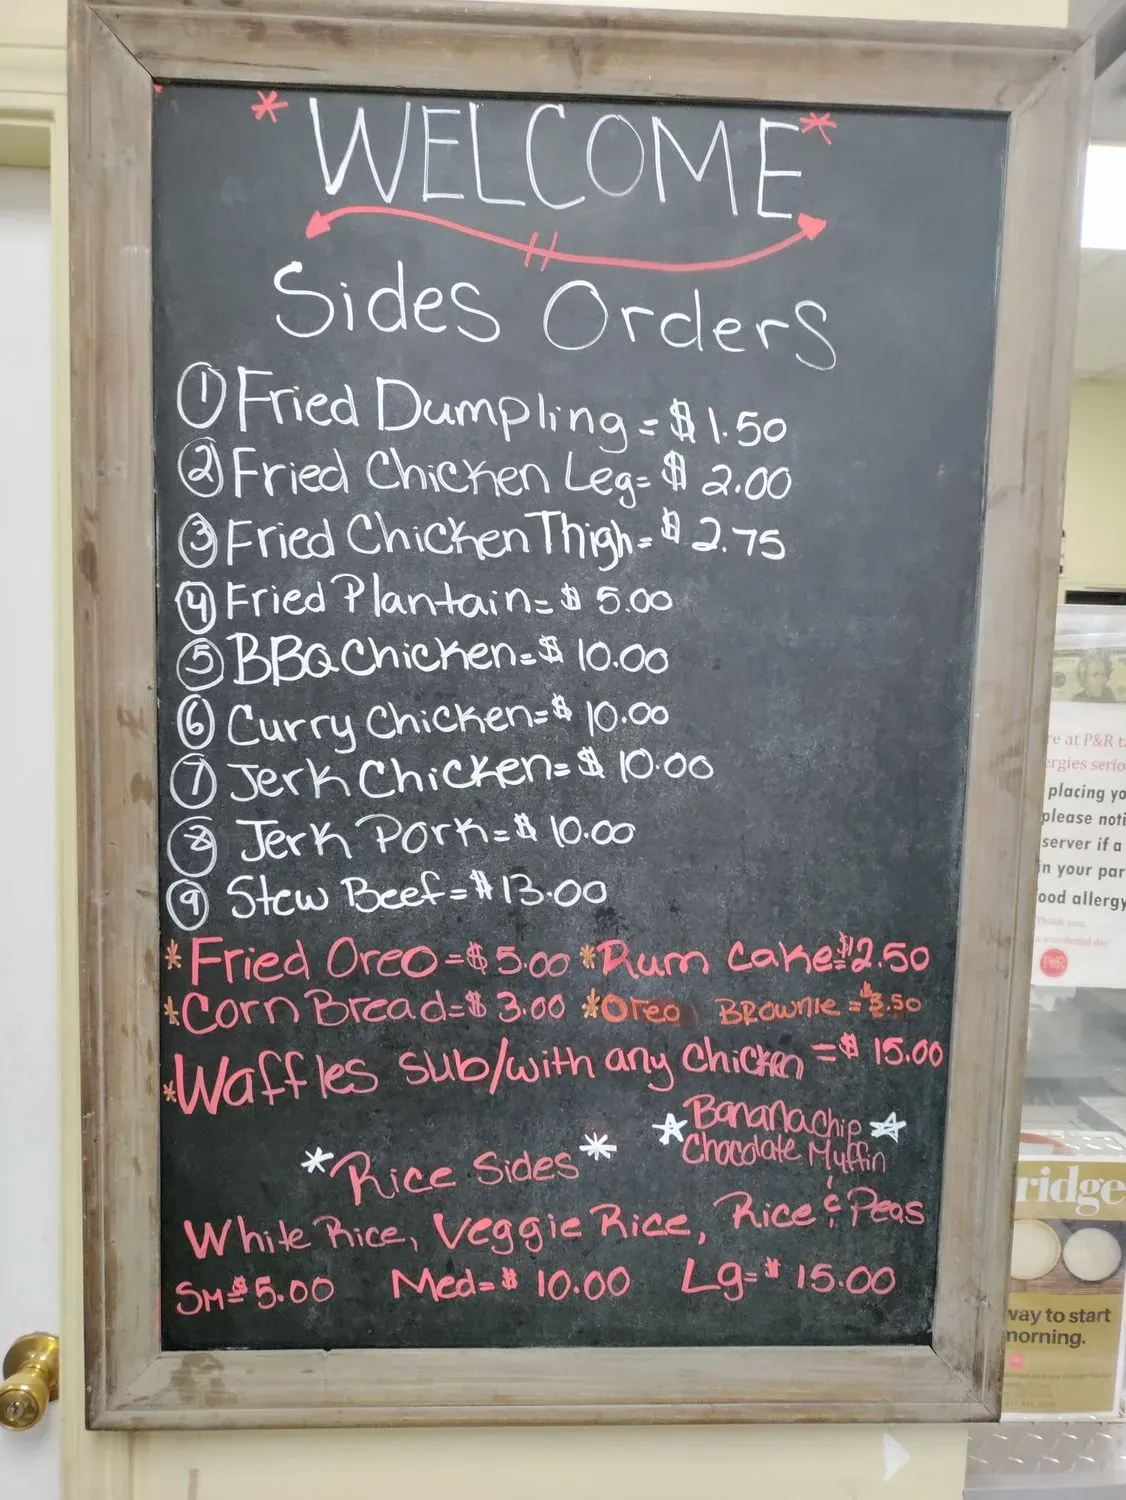 * WELCOME *
Sides Orders
① Fried Dumpling = $1.50
② Fried Chicken Leg = $ 2.00
③ Fried Chicken Thigh = $ 2.75
④ Fried Plantain = $ 5.00
⑤ BBQ Chicken = $ 10.00
⑥ Curry Chicken = $ 10.00
⑦ Jerk Chicken = $ 10.00
⑧ Jerk Pork = $ 10.00
⑨ Stew Beef = $ 13.00
* Fried Oreo = $ 5.00 * Rum Cake = $ 2.50
* Corn Bread = $ 3.00 * Oreo BROWNIE = $ .50
* Waffles sub/with any Chicken = $ 15.00
☆ Banana Chip ☆
Chocolate Muffin
* Rice Sides *
White Rice, Veggie Rice, Rice & Peas
SM = $ 5.00 Med = $ 10.00 Lg = $ 15.00
re at P&R
ergies serio
placing yo
please noti
server if a
in your par
ood allergy
Thank you,
a wonderful day
P&R
ridge
way to start
morning.